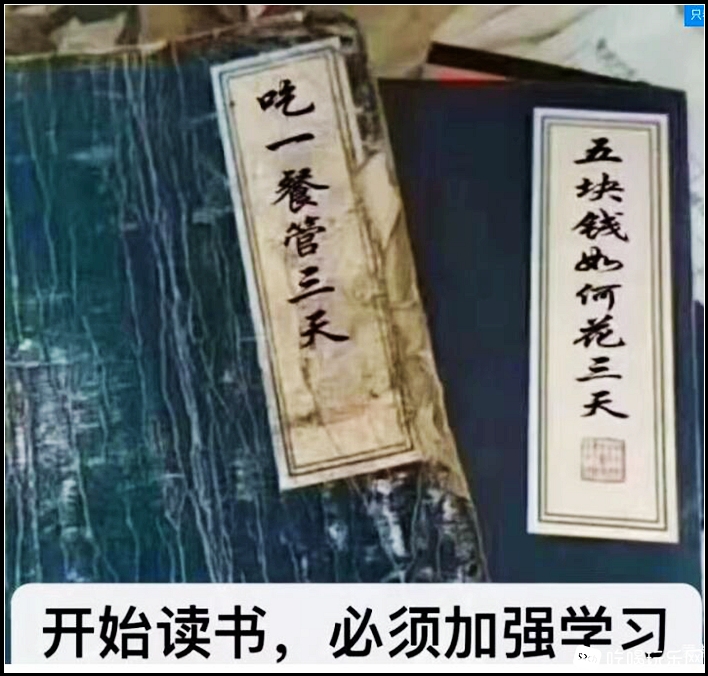 吃一餐管三天
五块钱如何花三天
开始读书，必须加强学习